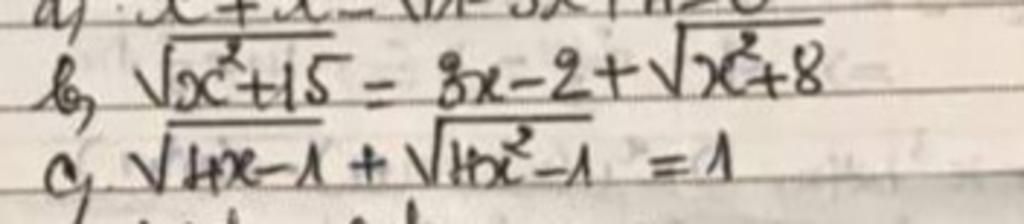 b, √(x²+15) = 3x-2+√(x²+8)
c, √(4x-1) + √(4x²-1) = 1